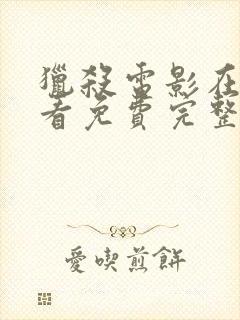 獵殺雷影在
看免費完整
愛喫煎餅